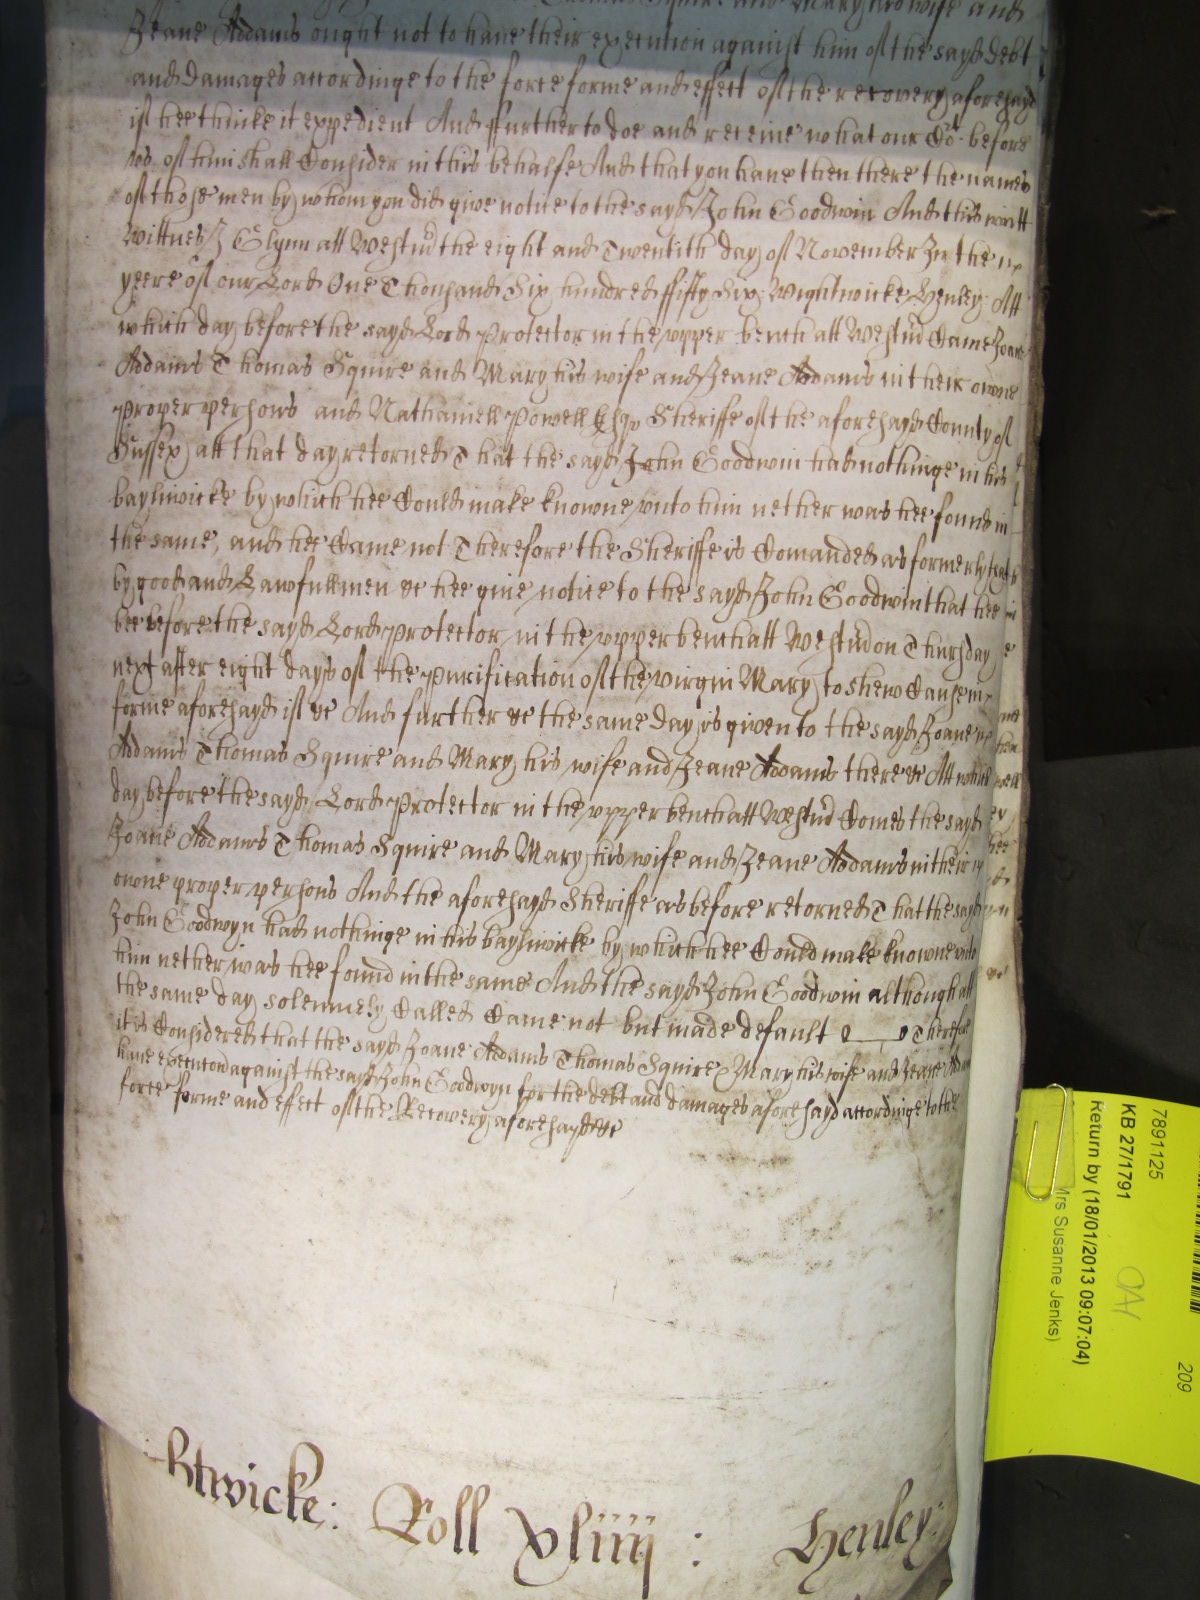 Squire and Mary his wife and
Jeane Addams ought not to have their execution against him of the sayd debt
and damages accordinge to the force forme and effect of the recovery aforesayd
if hee thinke it expedient And further to doe and receive what our Cort before
us of him shall Consider in this behalfe And that you have then there the names
of those men by whom you did give notice to the sayd John Goodwin And this writt
Wittnes J Glynn att Westmr the eight and Twentith day of November In the
yeere of our Lord One Thousand Six hundred fifty Six: Wightwicke Henley: Att
which day before the sayd Lord Protector in the upper bench att Westmr Came Joane
Addams Thomas Squire and Mary his wife and Jeane Addams in their owne
proper persons and Nathaniell Powell Esqr Sheriffe of the aforesayd County of
Sussex att that day retorned That the sayd John Goodwin had nothinge in his
bayliwicke by which hee Could make knowne unto him nether was hee found in
the same, and hee Came not Therefore the Sheriffe is Comanded as formerly that
by good and Lawfull men &c hee give notice to the sayd John Goodwin that hee
bee before the sayd Lord Protector in the upper bench att Westmr on Thursday
next after eight days of the purification of the virgin Mary to shew Cause in
forme aforesayd if &c And further &c the same day is given to the sayd Joane
Addams Thomas Squire and Mary his wife and Jeane Addams there &c Att which
day before the sayd Lord Protector in the upper bench att Westmr Comes the sayd
Joane Addams Thomas Squire and Mary his wife and Jeane Addams in their
owne proper persons And the aforesayd Sheriffe as before retorned That the sayd
John Goodwyn had nothinge in his bayliwicke by which hee Could make knowne unto
him nether was hee found in the same And the sayd John Goodwin although att
the same day solemnely Called Came not but made default Therefore
it is Considered that the sayd Joane Addams Thomas Squire & Mary his wife and Jeane Addams
have execucon against the sayd John Goodwyn for the debt and damages aforesayd accordinge to the
force forme and effect of the Recovery aforesayd &c
htwicke: Roll xliiij : Henley:
7891125
KB 27/1791
Return by (18/01/2013 09:07:04)
Mrs Susanne Jenks)
209